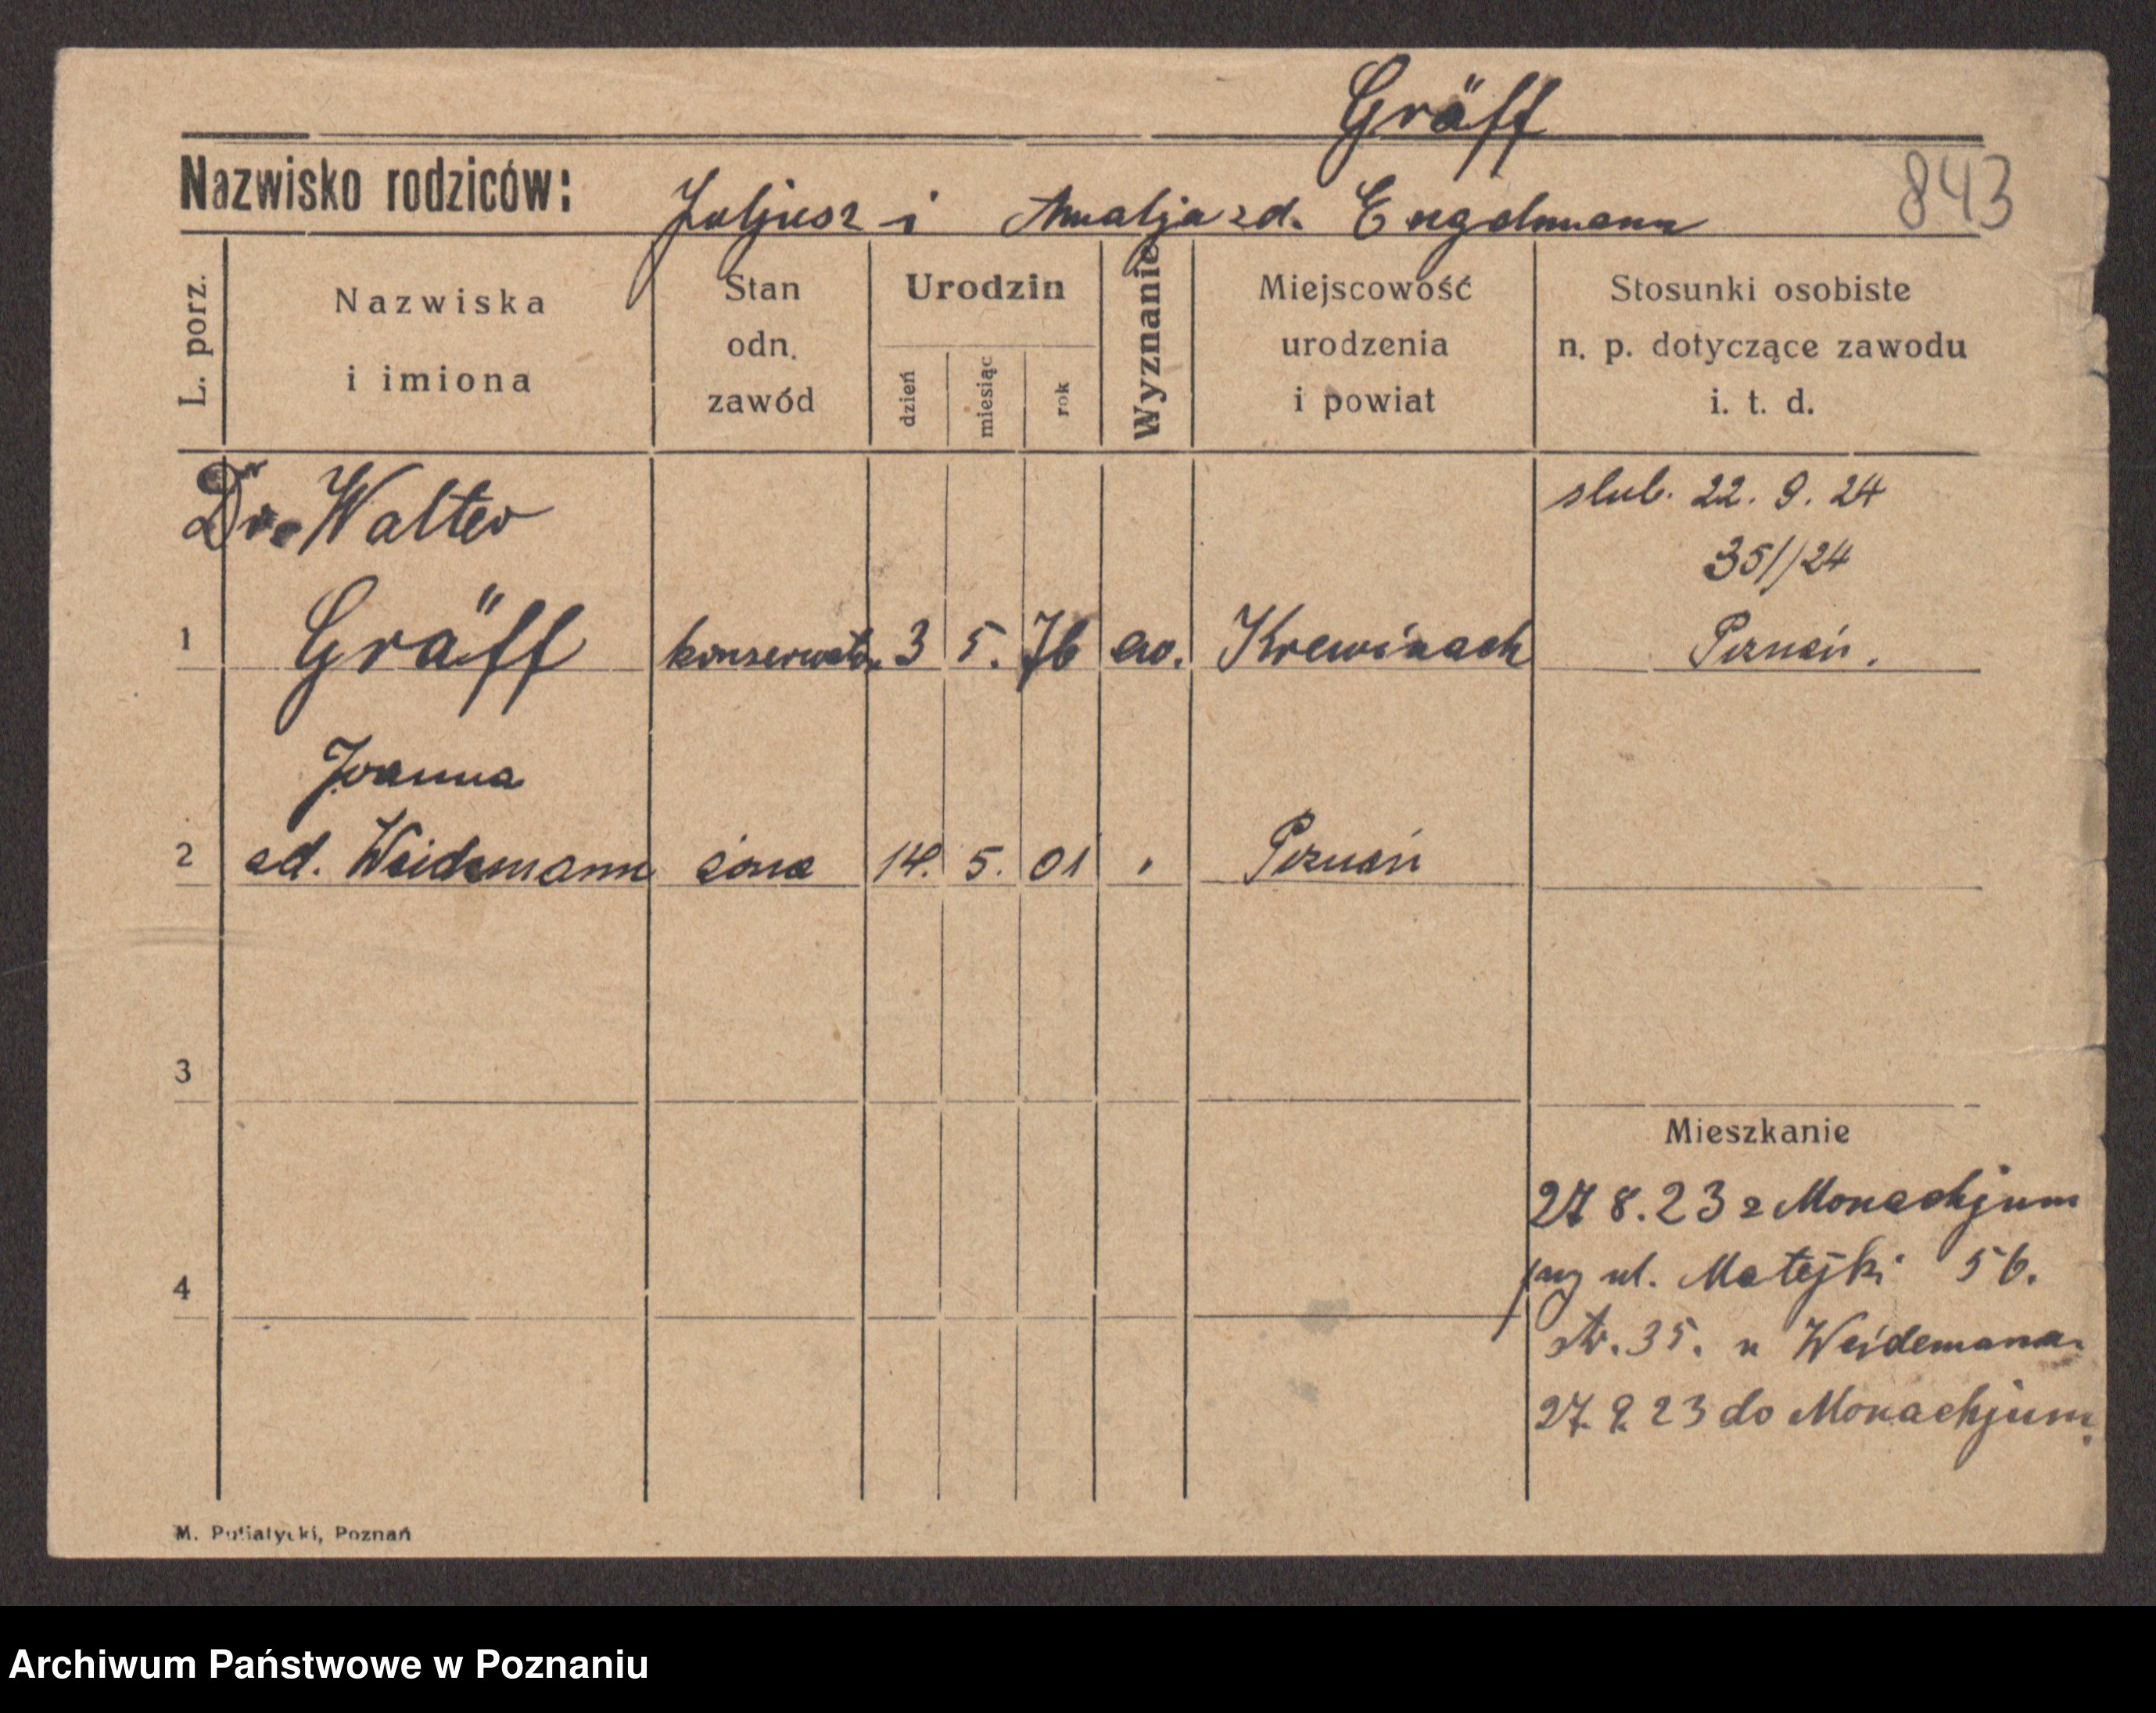 Gräff
843
Nazwisko rodziców: Juljusz i Amalja zd. Engelmann
L. porz.
Nazwiska i imiona
Stan odn. zawód
Urodzin
dzień
miesiąc
rok
Wyznanie
Miejscowość urodzenia i powiat
Stosunki osobiste n. p. dotyczące zawodu i. t. d.
Dr. Walter
ślub. 22. 9. 24
35//24
1 Gräff konserwator 3 5. 76 ew. Poznań.
Joanna
2 zd. Weidemann żona 14. 5. 01 " Poznań
3
Mieszkanie
27 8. 23 z Monachjum
przy ul. Matejki 56.
4
str. 35. u Weidemana.
27. 9. 23 do Monachjum.
M. Putiatycki, Poznań
Archiwum Państwowe w Poznaniu